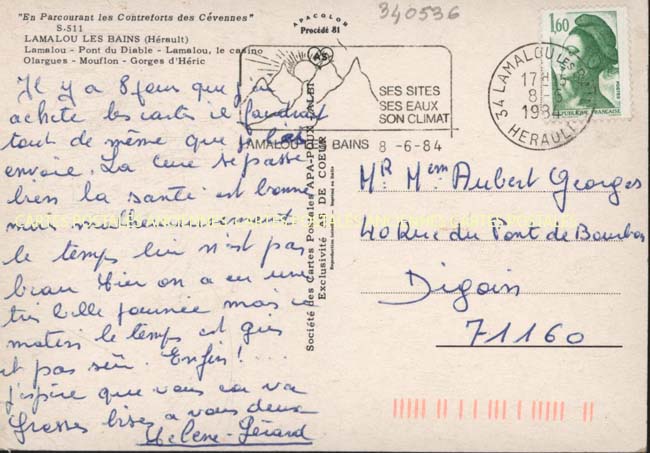 "En Parcourant les Contreforts des Cévennes"
S-511
LAMALOU LES BAINS (Hérault)
Lamalou - Pont du Diable - Lamalou, le casino
Olargues - Mouflon - Gorges d'Héric
APACOLOR
Procédé 81
340536
Il y a 8 jour que j'ai
achete les cartes il faudrait
tout de même que je les
envoie. La cure se passe
bien la santé est bonne
mais malheureusement
le temps lui n'est pas
beau Hier on a eu une
très belle journée mais ce
matin le temps est gris
et pas sûr. Enfin!...
j'espère que vous ca va
Grosses bises a vous deux
Helene-Gérard
Société des Cartes Postales APA-POUX ALBI
Exclusivité AS DE COEUR
AS
SES SITES
SES EAUX
SON CLIMAT
LAMALOU LES BAINS 8-6-84
34 LAMALOU LES
17H
8-
1984
HERAULT
1,60
REPUBLIQUE FRANÇAISE
POSTES
Mr Mem Aubert Georges
40 Rue du Pont de Bourbon
Digoin
71160
CARTES POSTALES ANCIENNES